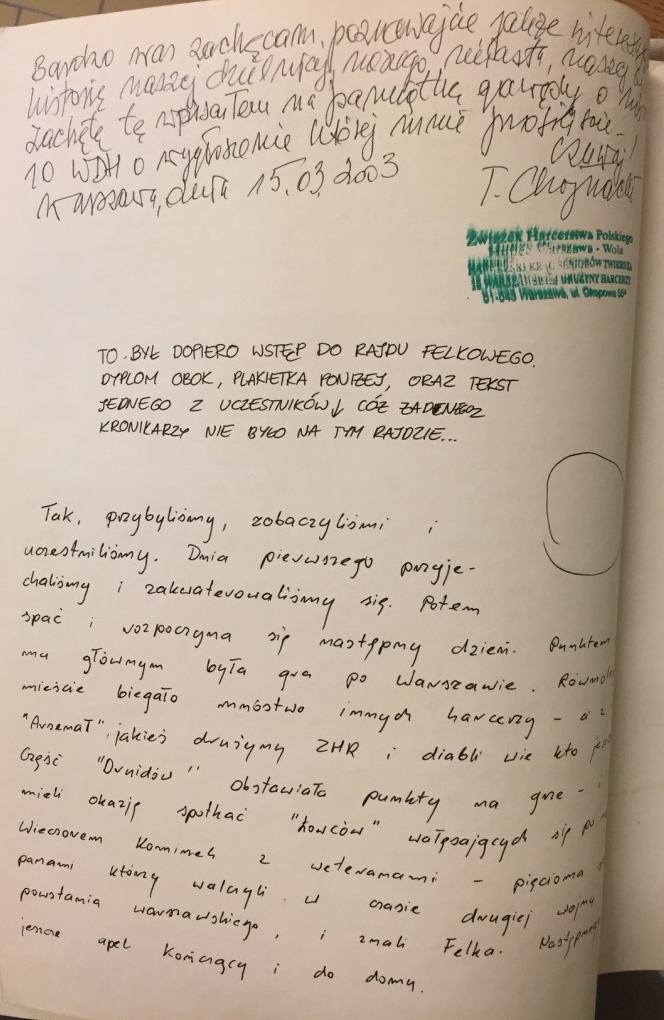 Bardzo was zachęcam, poznawajcie jakże
historię naszej dzielnicy, naszego miasta, naszej
Zachętę tę wpisałem na pamiątkę gawędy o
10 WDH o wygłoszenie której mnie
Czuwaj!
Warszawa, dnia 15.03.2003
T. Chojnacki
Związek Harcerstwa Polskiego
Hufiec Warszawa - Wola
KRĄG SENIORÓW TWIERDZA
DRUŻYNY HARCERZY
Warszawa, ul. Okopowa 55ª
TO BYŁ DOPIERO WSTĘP DO RAJDU FELKOWEGO.
DYPLOM OBOK, PLAKIETKA PONIŻEJ, ORAZ TEKST
JEDNEGO Z UCZESTNIKÓW↓ CÓŻ ŻADEN Z
KRONIKARZY NIE BYŁO NA TYM RAJDZIE...
Tak, przybyliśmy, zobaczyliśmi i
uczestniliśmy. Dnia pierwszego przyje-
chaliśmy i zakwaterowaliśmy się. Potem
spać i rozpoczyna się następny dzień. Punktem
na głównym była gra po Warszawie. Równol
mieście biegało mnóstwo innych harcerzy - a z
"Arsenał", jakieś drużyny ZHR i diabli wie kto
Część "Druidów" obstawiała punkty na grze -
mieli okazję spotkać "Łowców" wałęsających się po
Wieczorem Kominek z weteranami - pięcioma
panami którzy walczyli w czasie drugiej wojny
powstania warszawskiego, i znali Felka.
jeszcze apel Kończący i do domy.